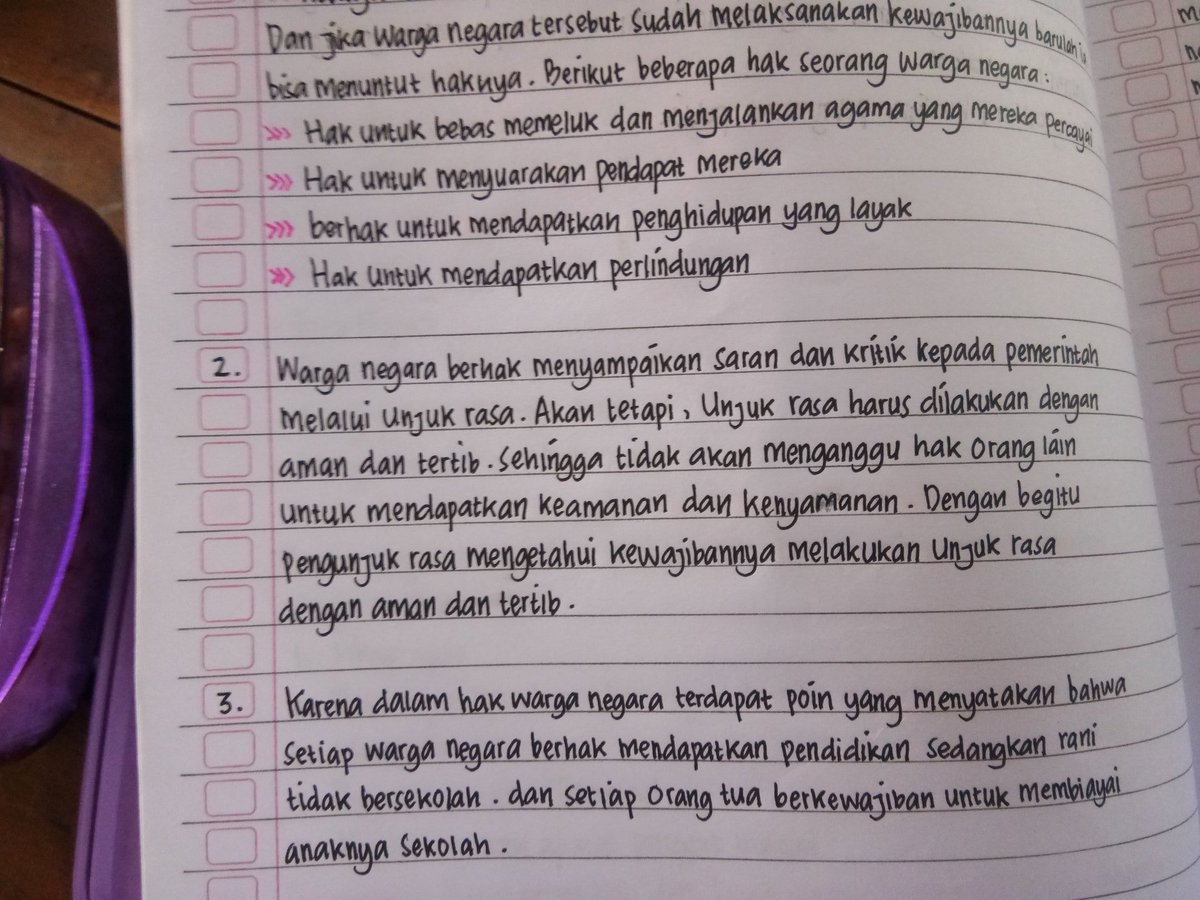 Dan jika warga negara tersebut sudah melaksanakan kewajibannya barulah ia
bisa menuntut haknya. Berikut beberapa hak seorang warga negara :
>>> Hak untuk bebas memeluk dan menjalankan agama yang mereka percayai
>>> Hak untuk menyuarakan pendapat mereka
>>> berhak untuk mendapatkan penghidupan yang layak
>>> Hak untuk mendapatkan perlindungan
2. Warga negara berhak menyampaikan saran dan kritik kepada pemerintah
melalui unjuk rasa. Akan tetapi, Unjuk rasa harus dilakukan dengan
aman dan tertib. Sehingga tidak akan menganggu hak orang lain
untuk mendapatkan keamanan dan kenyamanan. Dengan begitu
pengunjuk rasa mengetahui kewajibannya melakukan unjuk rasa
dengan aman dan tertib.
3. Karena dalam hak warga negara terdapat poin yang menyatakan bahwa
setiap warga negara berhak mendapatkan pendidikan sedangkan rani
tidak bersekolah. dan setiap orang tua berkewajiban untuk membiayai
anaknya sekolah.